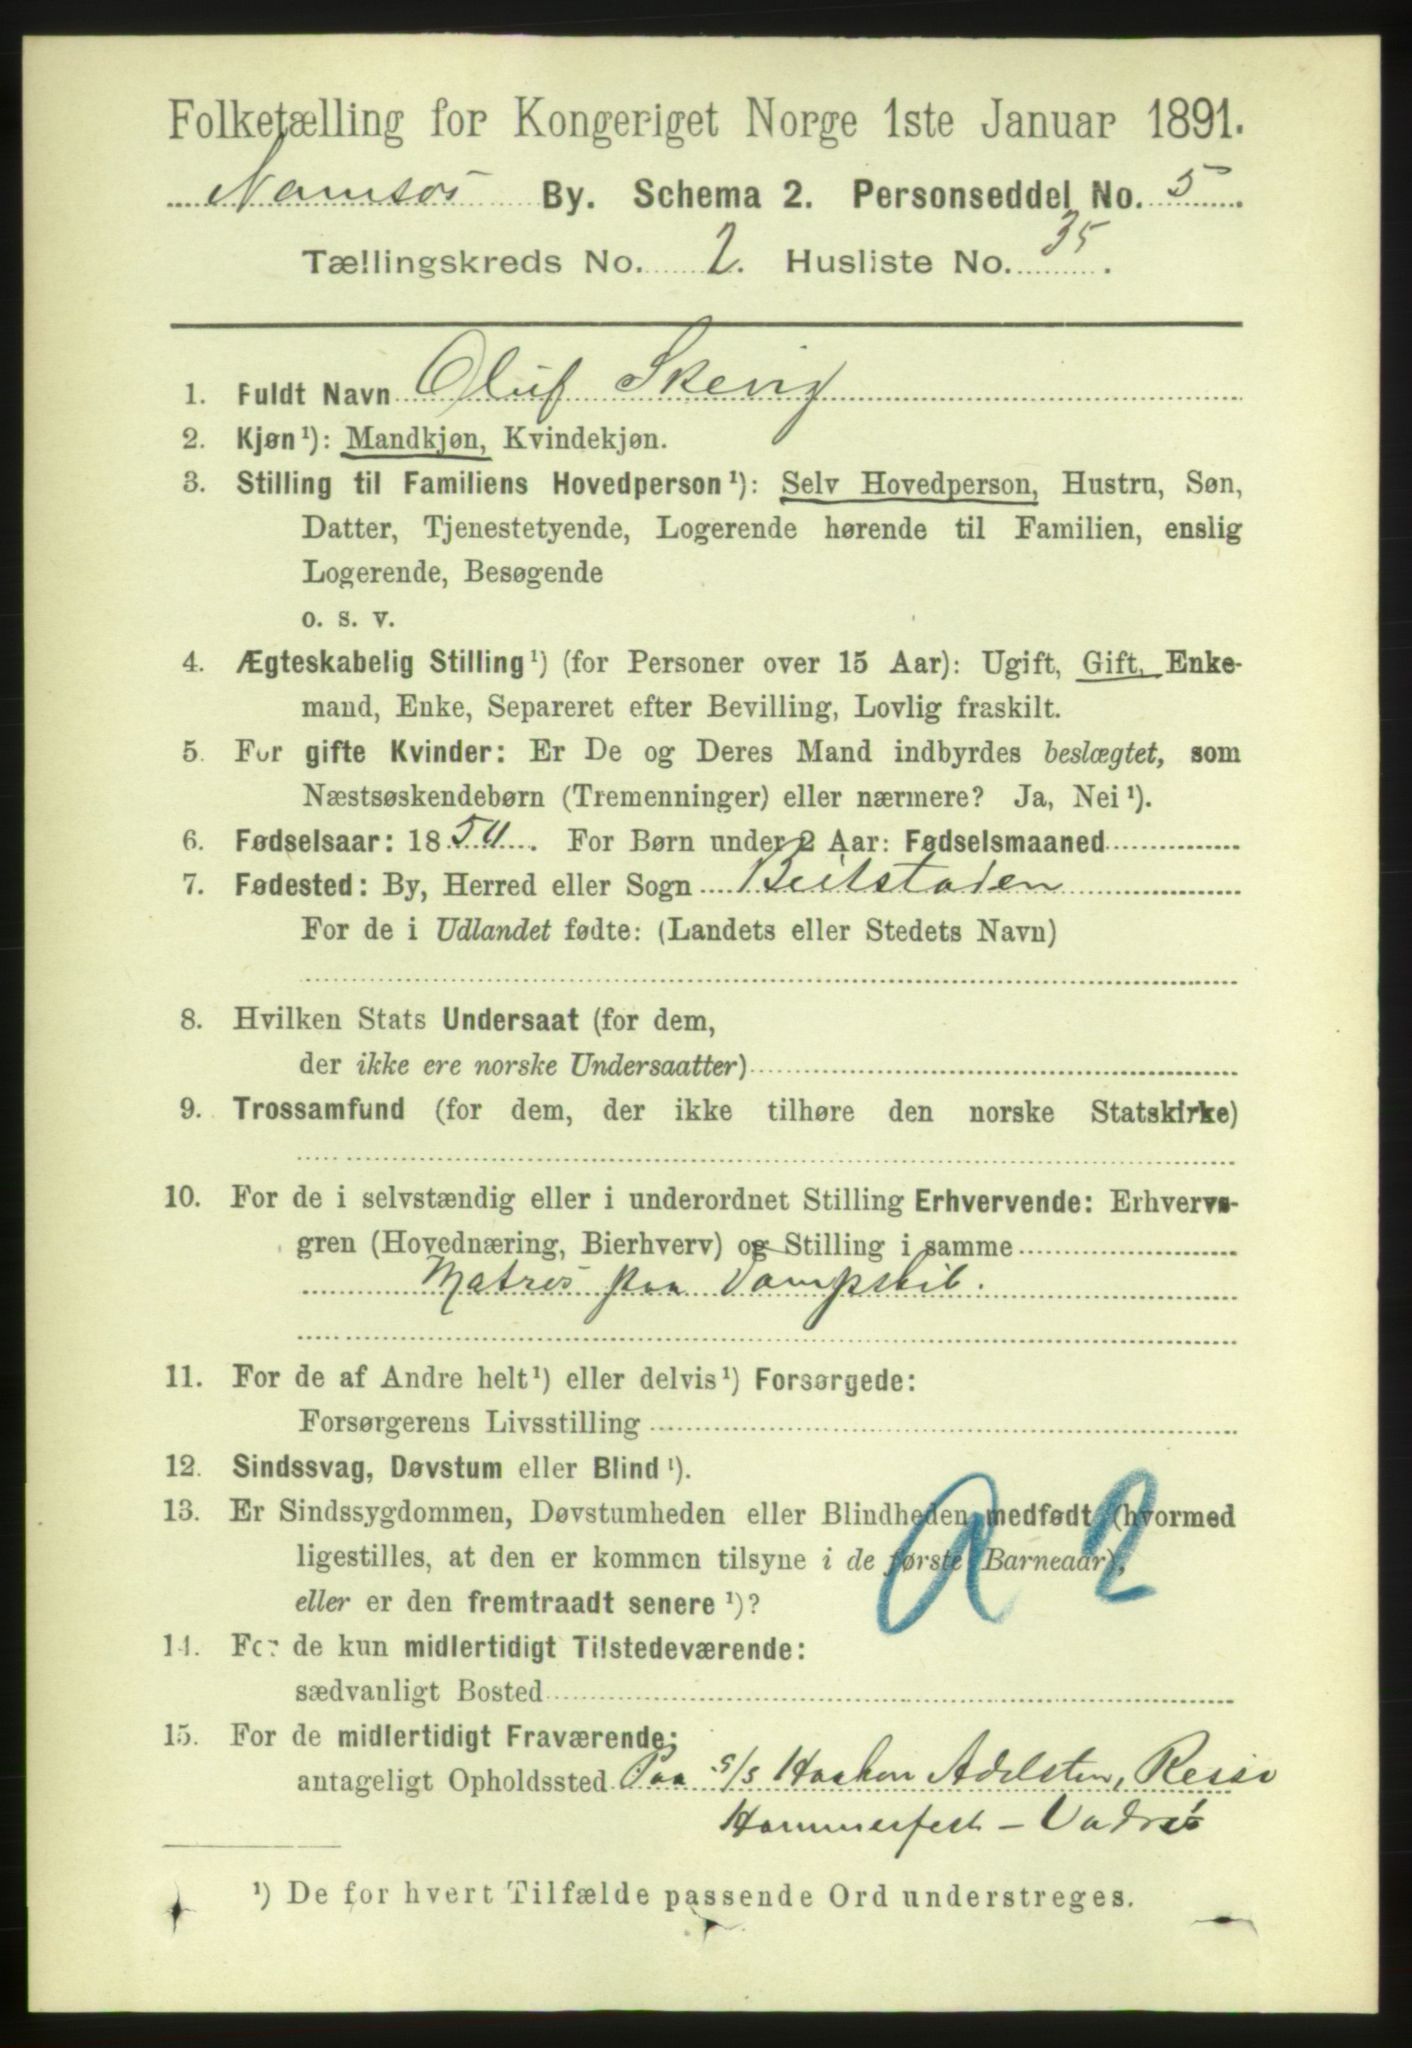 Folketælling for Kongeriget Norge 1ste Januar 1891.
Namsos By. Schema 2. Personseddel No. 5
Tællingskreds No. 2. Husliste No. 35.
1. Fuldt Navn Oluf Skevig
2. Kjøn¹): Mandkjøn, Kvindekjøn.
3. Stilling til Familiens Hovedperson¹): Selv Hovedperson, Hustru, Søn,
Datter, Tjenestetyende, Logerende hørende til Familien, enslig
Logerende, Besøgende
o. s. v.
4. Ægteskabelig Stilling¹) (for Personer over 15 Aar): Ugift, Gift, Enke-
mand, Enke, Separeret efter Bevilling, Lovlig fraskilt.
5. For gifte Kvinder: Er De og Deres Mand indbyrdes beslægtet, som
Næstsøskendebørn (Tremenninger) eller nærmere? Ja, Nei¹).
6. Fødselsaar: 1854. For Børn under 2 Aar: Fødselsmaaned
7. Fødested: By, Herred eller Sogn Beitstaden
For de i Udlandet fødte: (Landets eller Stedets Navn)
8. Hvilken Stats Undersaat (for dem,
der ikke ere norske Undersaatter)
9. Trossamfund (for dem, der ikke tilhøre den norske Statskirke)
10. For de i selvstændig eller i underordnet Stilling Erhvervende: Erhvervs-
gren (Hovednæring, Bierhverv) og Stilling i samme
Matros paa Dampskib.
11. For de af Andre helt¹) eller delvis¹) Forsørgede:
Forsørgerens Livsstilling
12. Sindssvag, Døvstum eller Blind¹).
13. Er Sindssygdommen, Døvstumheden eller Blindheden medfødt (hvormed
ligestilles, at den er kommen tilsyne i de første Barneaar),
eller er den fremtraadt senere¹)?
a 2
14. For de kun midlertidigt Tilstedeværende:
sædvanligt Bosted
15. For de midlertidigt Fraværende:
antageligt Opholdssted Paa s/s Haakon Adelsten, Reise
Hammerfest – Vadsø
¹) De for hvert Tilfælde passende Ord understreges.